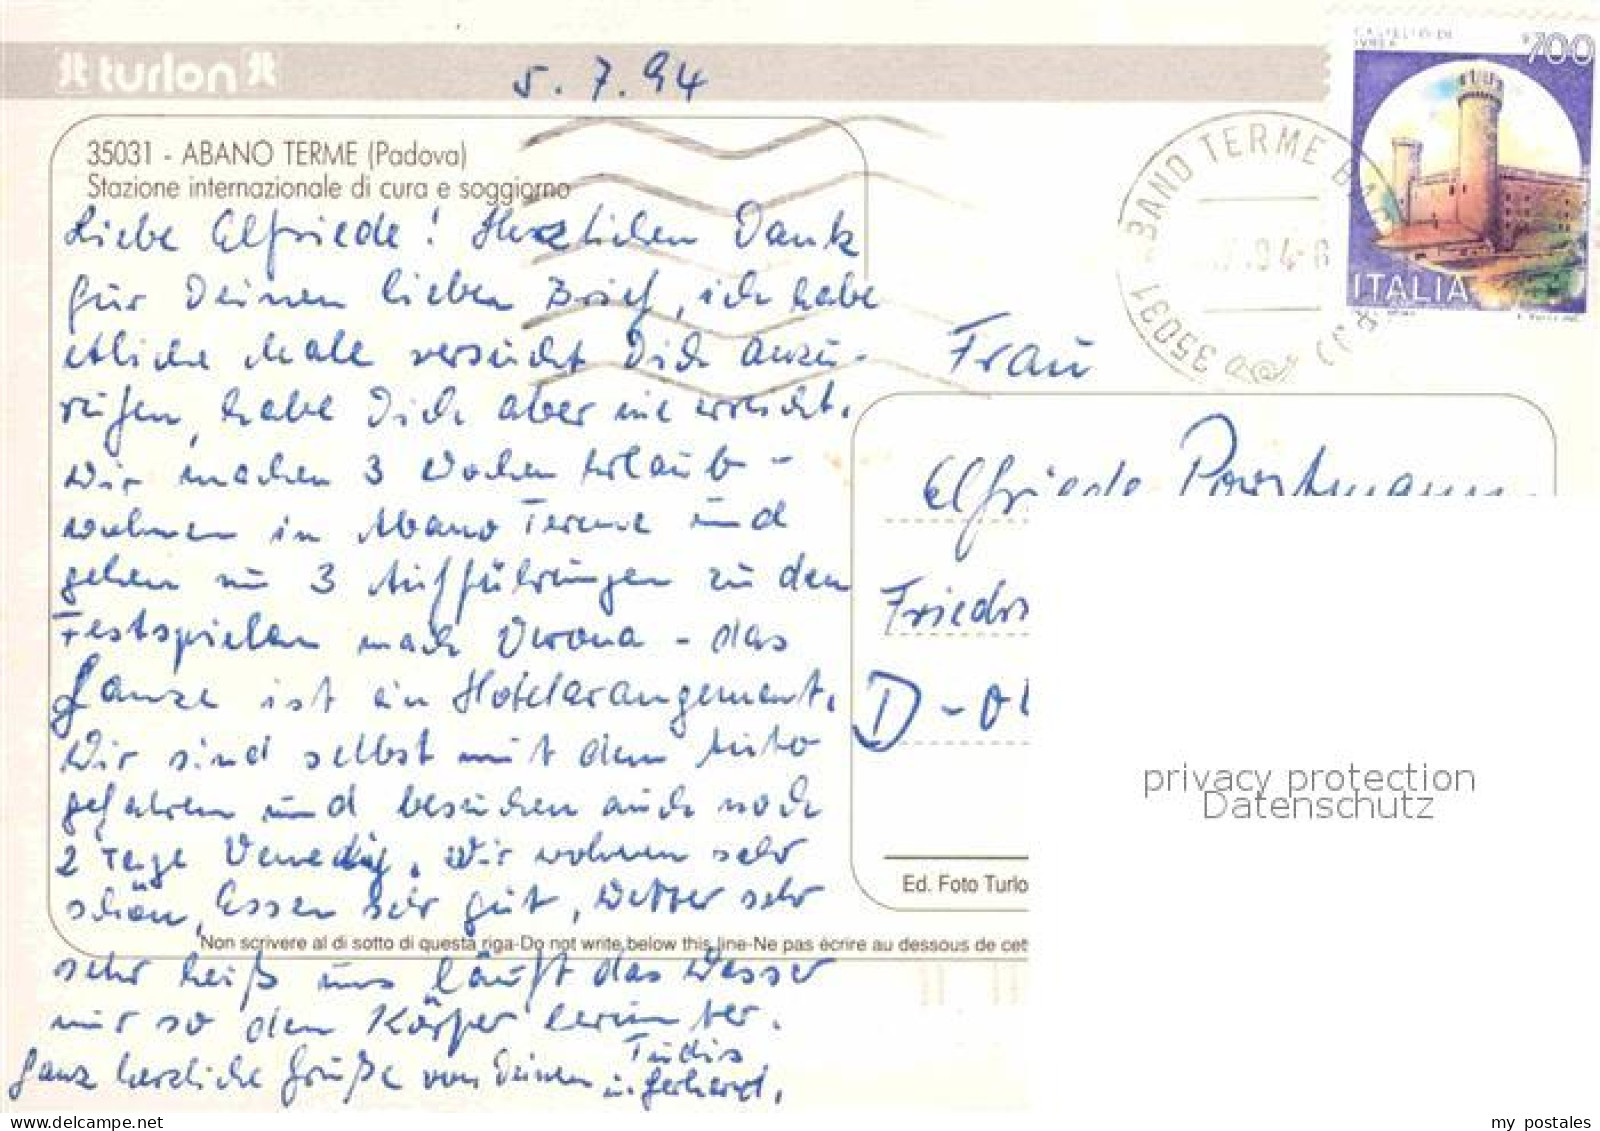 turlon
5.7.94
CASTELLO DI
IVREA
700
ITALIA
35031 - ABANO TERME (Padova)
Stazione internazionale di cura e soggiorno
35031 ABANO TERME
Liebe Elfriede! Herzlichen Dank
für Deinen lieben Brief, ich habe
etliche Male versucht Dich anzu-
rufen, habe Dich aber nie erreicht.
Wir machen 3 Wochen Urlaub -
wohnen in Abano Terme und
gehen zu 3 Aufführungen zu den
Festspielen nach Verona - das
Ganze ist ein Hotelarangement.
Wir sind selbst mit dem Auto
gefahren und besuchen auch noch
2 Tage Venedig. Wir wohnen sehr
schön, Essen sehr gut, Wetter sehr
sehr heiß uns läuft das Wasser
nur so den Körper herunter.
Ganz herzliche Grüße von Deinen
u. Gerhard.
Frau
Elfriede Portmann
Friedr
D-01
Ed. Foto Turlo
Non scrivere al di sotto di questa riga-Do not write below this line-Ne pas écrire au dessous de cet
privacy protection
Datenschutz
my postales
www.delcampe.net